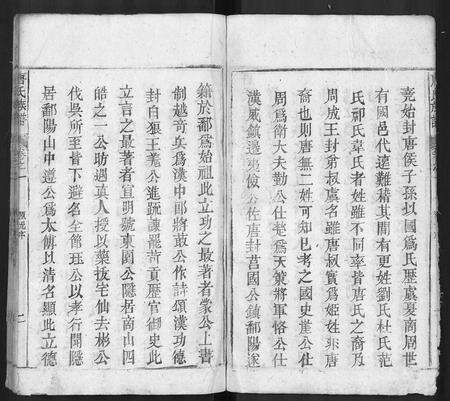 堯始封唐侯子孫以國爲氏歷虞夏商周世
有國邑代遠難稽其間有更姓劉氏杜氏范
氏祁氏韋氏者姓雖不同率皆唐氏之裔乃
周成王封弟叔虞名雖唐叔實爲姬姓非唐
裔也則唐無二姓可知已考之國史崖公仕
周爲衛大夫勤公仕楚爲天策將軍恪公仕
漢威鎮邊夷儉公佐唐封莒國公鎮鄱陽遂
籍於鄱爲始祖此立功之最著者蒙公上書
制越奇兵爲漢中郎將鼓公作詩頌漢功德
封白狼王羌公進疏諫罷苛貢歷官御史此
立言之最著者宣明號東園公隱栝南山四
皓之一公昉遇真人授以藥拔宅仙去彬公
伐吳所至皆下避名全節玨公以孝行聞隱
居鄱陽山中遵公爲太傅以清名顯此立德
唐氏族譜
卷之一
二